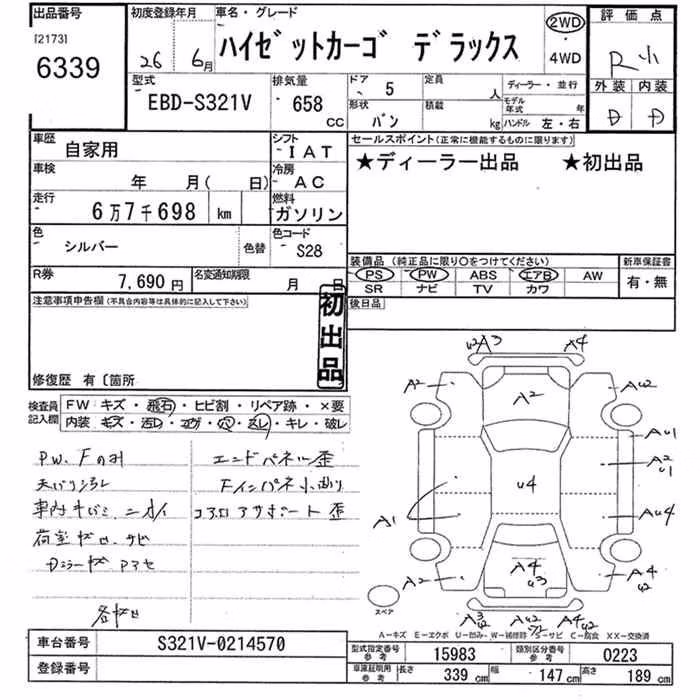 出品番号
[2173]
6339
初度登録年月
26 6月
車名・グレード
ハイゼットカーゴ デラックス
2WD
・
4WD
評価点
R小
外装 内装
D D
型式
EBD-S321V
排気量
658
CC
ドア
5
定員
人
ディーラー・並行
形状
バン
積載
kg
モデル年式
年
ハンドル 左・右
車歴
自家用
シフト
IAT
セールスポイント(正常に機能するものに限ります)
★ディーラー出品 ★初出品
車検
年 月( 日)
冷房
AC
走行
6万7千698 km
燃料
ガソリン
色
シルバー
色替
色コード
S28
装備品 (純正品に限り〇をつけてください)
新車保証書
PS PW ABS エアB AW
SR ナビ TV カワ
有・無
R券
7,690円
名変通知期限
月 日
後日品
注意事項申告欄(不具合内容等は具体的に記入して下さい)
初出品
修復歴 有〔箇所
検査員記入欄
FW・キズ・飛石・ヒビ割・リペア跡・×要
内装・キズ・汚レ・コゲ・穴・スレ・キレ・破レ
PW、Fのみ
エンドパネル歪
コアロアサポート歪
A2
A4
A2
A2
AU2
AU1
A2
U1
U4
A1
AU4
A2
A4
U3
A4
U2
スペア
A-キズ E-エクボ U-凹み W-補修跡 S-サビ C-腐食 XX-交換済
車台番号
S321V-0214570
型式指定番号
参考
15983
類別区分番号
参考
0223
登録番号
車庫証明用
参考
長さ
339 cm
幅
147 cm
高さ
189 cm